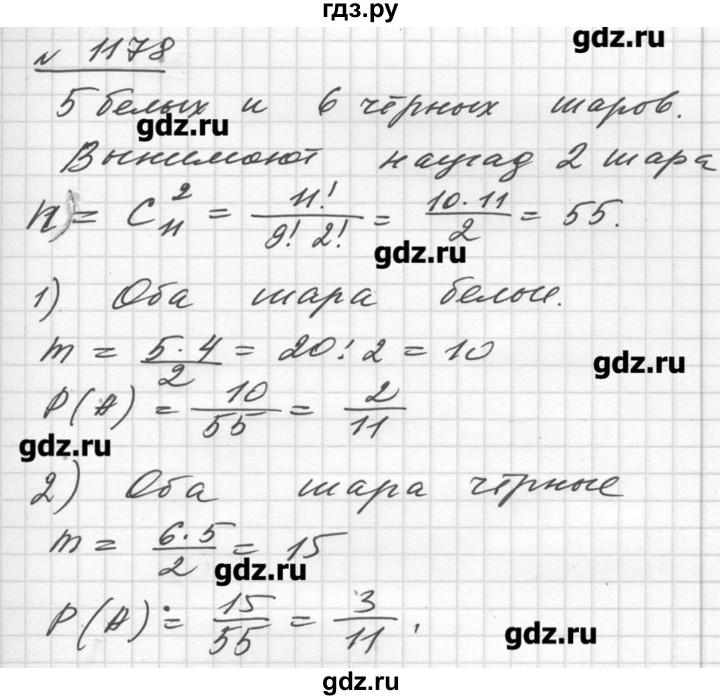 гдз.ру
gdz.ru
№ 1178
5 белых и 6 чёрных шаров.
gdz.ru
Вынимают наугад 2 шара
n = C₁₁² = 11!/(9! 2!) = (10·11)/2 = 55.
gdz.ru
1) Оба шара белые.
m = (5·4)/2 = 20:2 = 10
gdz.ru
P(A) = 10/55 = 2/11
gdz.ru
2) Оба шара чёрные
m = (6·5)/2 = 15
gdz.ru
P(A) = 15/55 = 3/11.
gdz.ru
gdz.ru